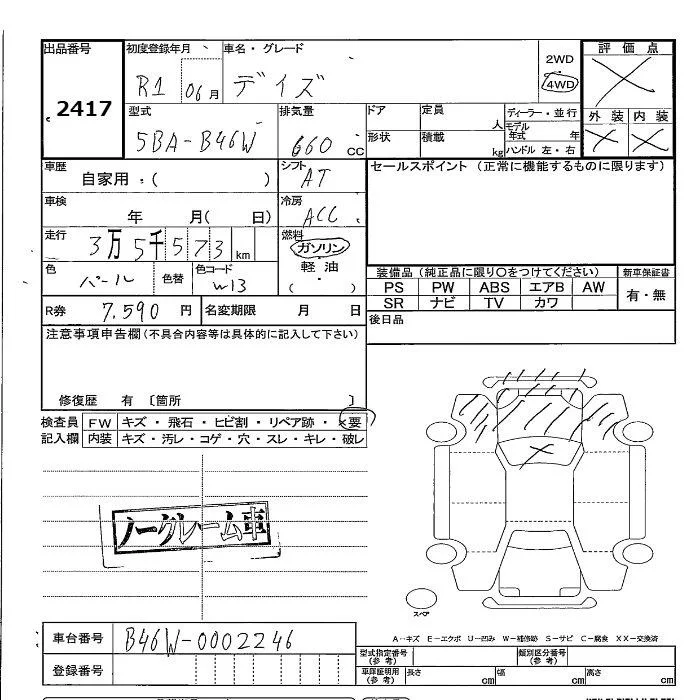 出品番号
2417
初度登録年月
R1 06月
車名・グレード
デイズ
2WD
4WD
評価点
×
外装 内装
× ×
型式
5BA-B46W
排気量
660 CC
ドア
形状
定員
人
積載
kg
ディーラー・並行
モデル年式 年
ハンドル 左・右
車歴
自家用:( )
シフト
AT
車検
年 月( 日)
冷房
ACC
走行
3万5千573km
燃料
ガソリン
軽油
( ・ )
色
パール
色替
色コード
W13
R券 7.590 円
名変期限 月 日
セールスポイント (正常に機能するものに限ります)
装備品(純正品に限り〇をつけてください)
新車保証書
PS PW ABS エアB AW
SR ナビ TV カワ
有・無
後日品
注意事項申告欄(不具合内容等は具体的に記入して下さい)
修復歴 有 〔箇所 〕
検査員
記入欄
FW キズ・飛石・ヒビ割・リペア跡・×要
内装 キズ・汚レ・コゲ・穴・スレ・キレ・破レ
ノークレーム車
スペア
A-キズ E-エクボ U-凹み W-補修跡 S-サビ C-腐食 XX-交換済
車台番号
B46W-0002246
登録番号
型式指定番号
(参考)
類別区分番号
(参考)
車庫証明用
(参考)
長さ cm
幅 cm
高さ cm